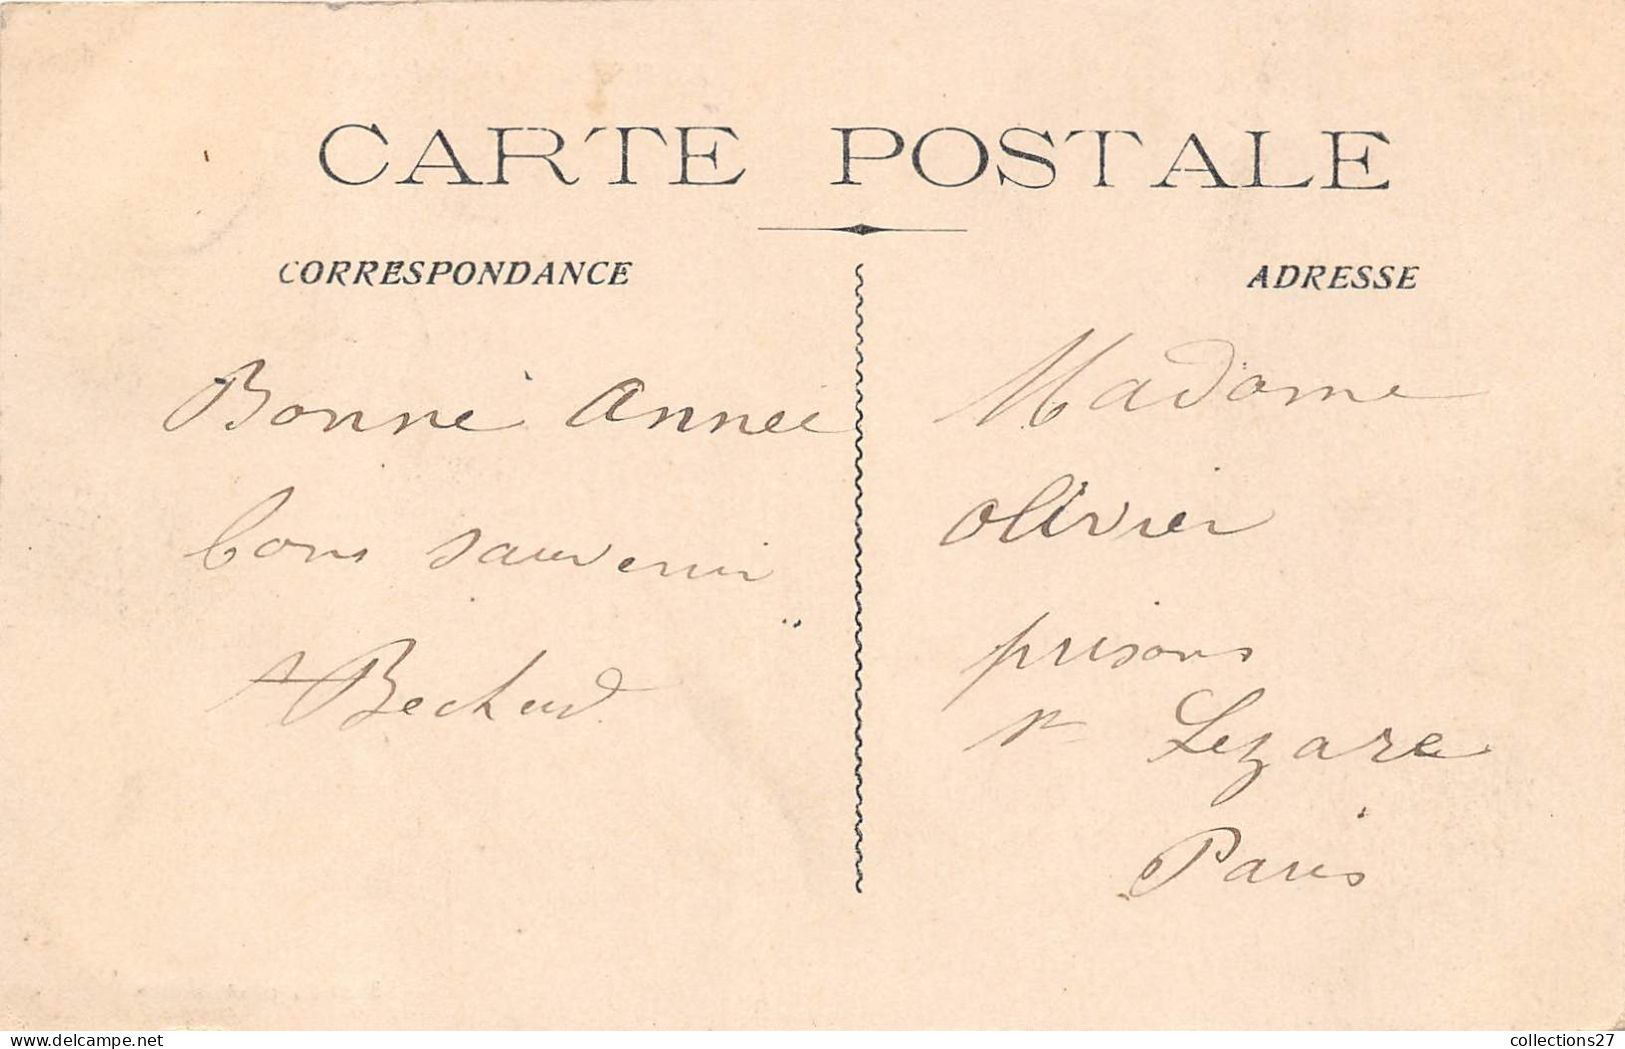 CARTE POSTALE
CORRESPONDANCE
ADRESSE
Bonne année
bons sauvenir
Bechud
Madame
olivier
prisons
St Lezare
Paris
delcampe.net
collections27